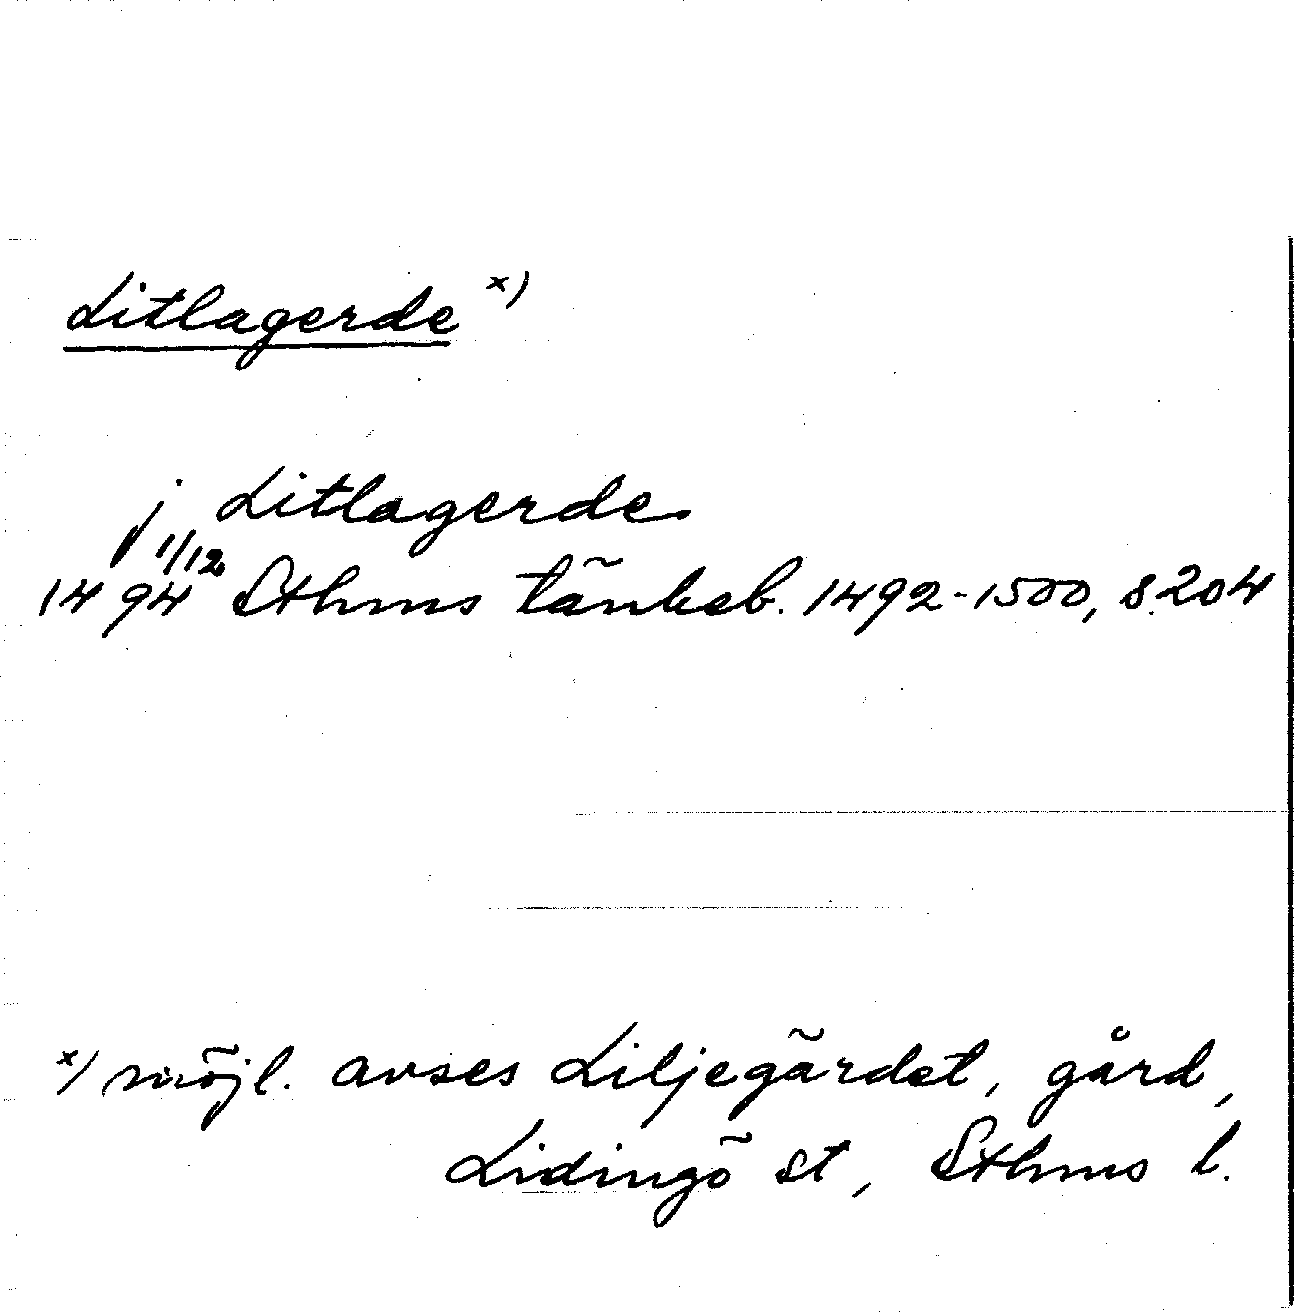 Litlagerde x)
j Litlagerde
1494 1/12 Sthms tänkeb. 1492-1500, s. 204
x) möjl. avses Liljegärdet, gård,
Lidingö st, Sthms l.